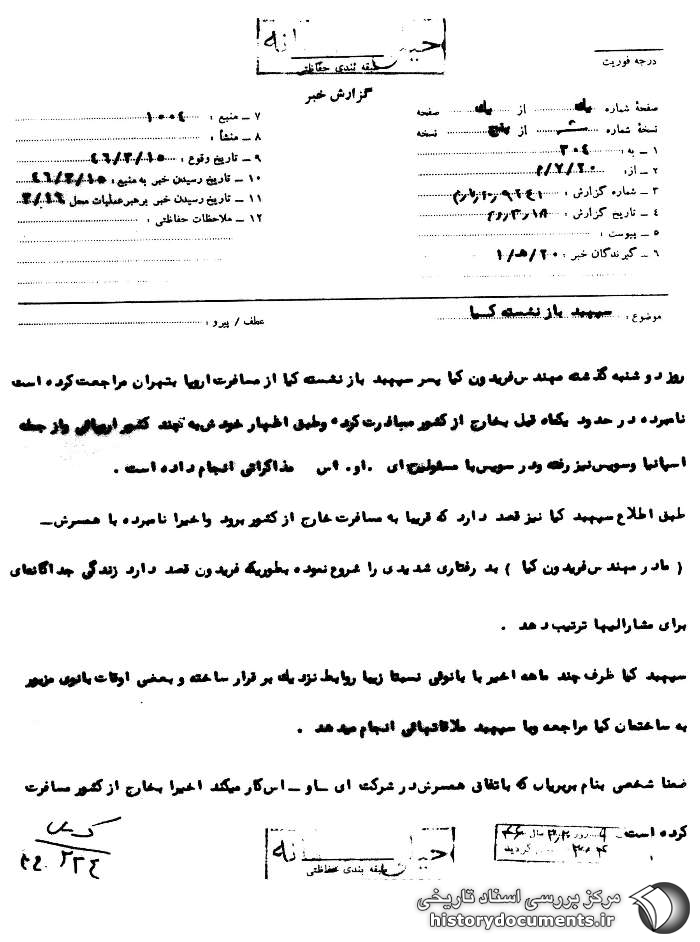 طبقه بندی حفاظتی
درجه فوریت
گزارش خبر
صفحهٔ شماره یك از یك صفحه
نسخهٔ شماره از پنج نسخه
۱ ــ به : ۳۰۴
۲ ــ از :
۳ ــ شماره گزارش :
۴ ــ تاریخ گزارش :
۵ ــ پیوست :
۶ ــ گیرندگان خبر :
۷ ــ منبع : ۱۰۰۴
۸ ــ منشأ :
۹ ــ تاریخ وقوع : ۴۶/۳/۱۵
۱۰ ــ تاریخ رسیدن خبر به منبع : ۴۶/۳/۱۵
۱۱ ــ تاریخ رسیدن خبر برهبر عملیات محل ۳/۱۶
۱۲ ــ ملاحظات حفاظتی :
موضوع : سپهبد باز نشسته کیا
عطف / پیرو :
روز دو شنبه گذشته مهندس فریدون کیا پسر سپهبد باز نشسته کیا از مسافرت اروپا بتهران مراجعت کرده است
نامبرده در حدود یکماه قبل بخارج از کشور مبادرت کرده وطبق اظهار خودش به چند کشور اروپائی واز جمله
اسپانیا وسویس نیز رفته ودر سویس با مسئولین ای .او. اس مذاکراتی انجام داده است .
طبق اطلاع سپهبد کیا نیز قصد دارد که قریبا به مسافرت خارج از کشور برود واخیرا نامبرده با همسرش ــ
( مادر مهندس فریدون کیا ) بد رفتاری شدیدی را شروع نموده بطوریکه فریدون قصد دارد زندگی جداگانه‌ای
برای مشارالیها ترتیب دهد .
سپهبد کیا ظرف چند ماهه اخیر با بانوئی نسبتا زیبا روابط نزدیك بر قرار ساخته و بعضی اوقات بانوی مزبور
به ساختمان کیا مراجعه وبا سپهبد ملاقاتهائی انجام میدهد .
ضمنا شخصی بنام بریریان که باتفاق همسرش در شرکت ای ــ او ــ اس کار میکند اخیرا بخارج از کشور مسافرت
کرده است .
روز سال ۴۶
۳۰۴ گردید
طبقه بندی حفاظتی
مرکز بررسی اسناد تاریخی
historydocuments.ir